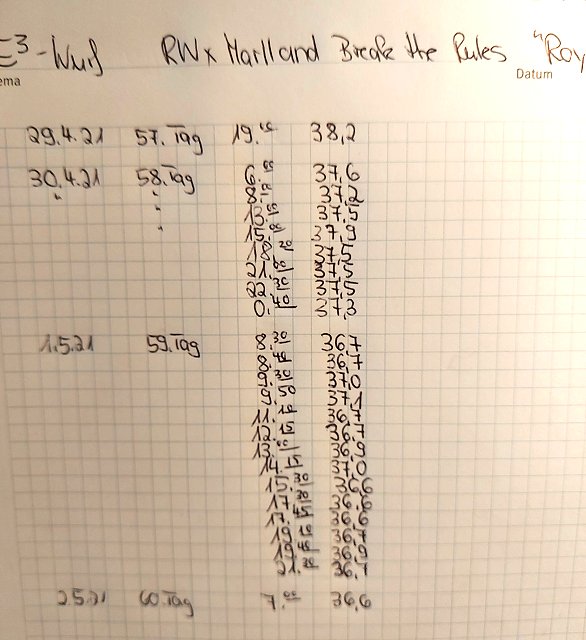 E³-Wurf RW x Harlland Break the Rules "Roy
ema Datum
29.4.21 57.Tag 19.¹⁵ 38,2
30.4.21 58.Tag 6.⁰⁰ 37,6
" " 8. 37,2
" 13. 37,5
" 15. 37,9
18.²⁰ 37,5
21.⁰⁰ 37,5
22.³⁰ 37,5
0.⁴⁰ 37,3
1.5.21 59.Tag 8.³⁰ 36,7
8.⁴⁵ 36,7
9.³⁰ 37,0
9.⁵⁰ 37,1
11.¹⁵ 36,7
12.¹⁵ 36,7
13.⁰⁰ 36,9
14.¹⁵ 37,0
15.³⁰ 36,6
17.³⁰ 36,6
17.⁴⁵ 36,6
19.¹⁰ 36,7
19.⁴⁰ 36,9
21.³⁰ 36,7
2.5.21 60.Tag 7.⁰⁰ 36,6